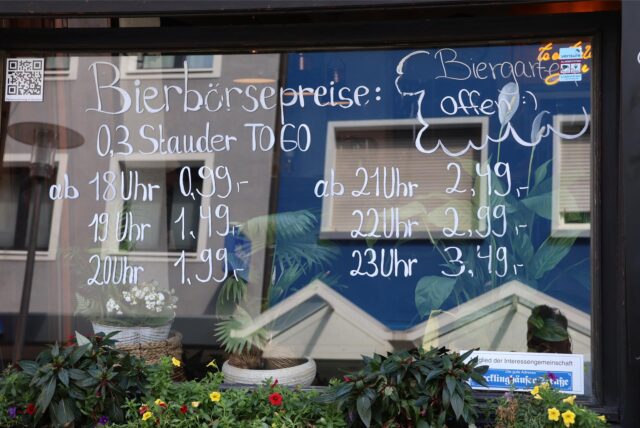 Bierbörsepreise:
0,3 Stauder TO GO
ab 18 Uhr 0,99,-
19 Uhr 1,49,-
20 Uhr 1,99,-
ab 21 Uhr 2,49,-
22 Uhr 2,99,-
23 Uhr 3,49,-
Biergarten
offen :)
Mitglied der Interessengemeinschaft